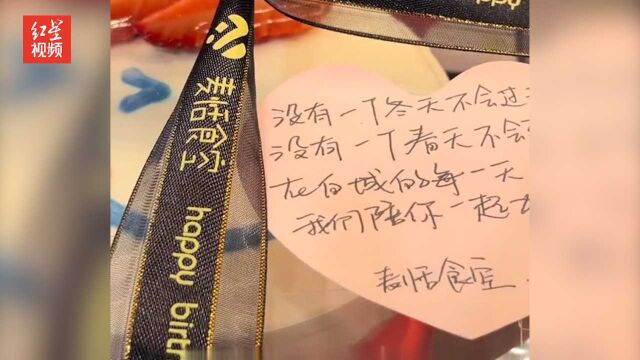 红星
视频
麦恬食室
happy birt
没有一个冬天不会过
没有一个春天不会
在白城的每一天
我们陪你一起
麦恬食室